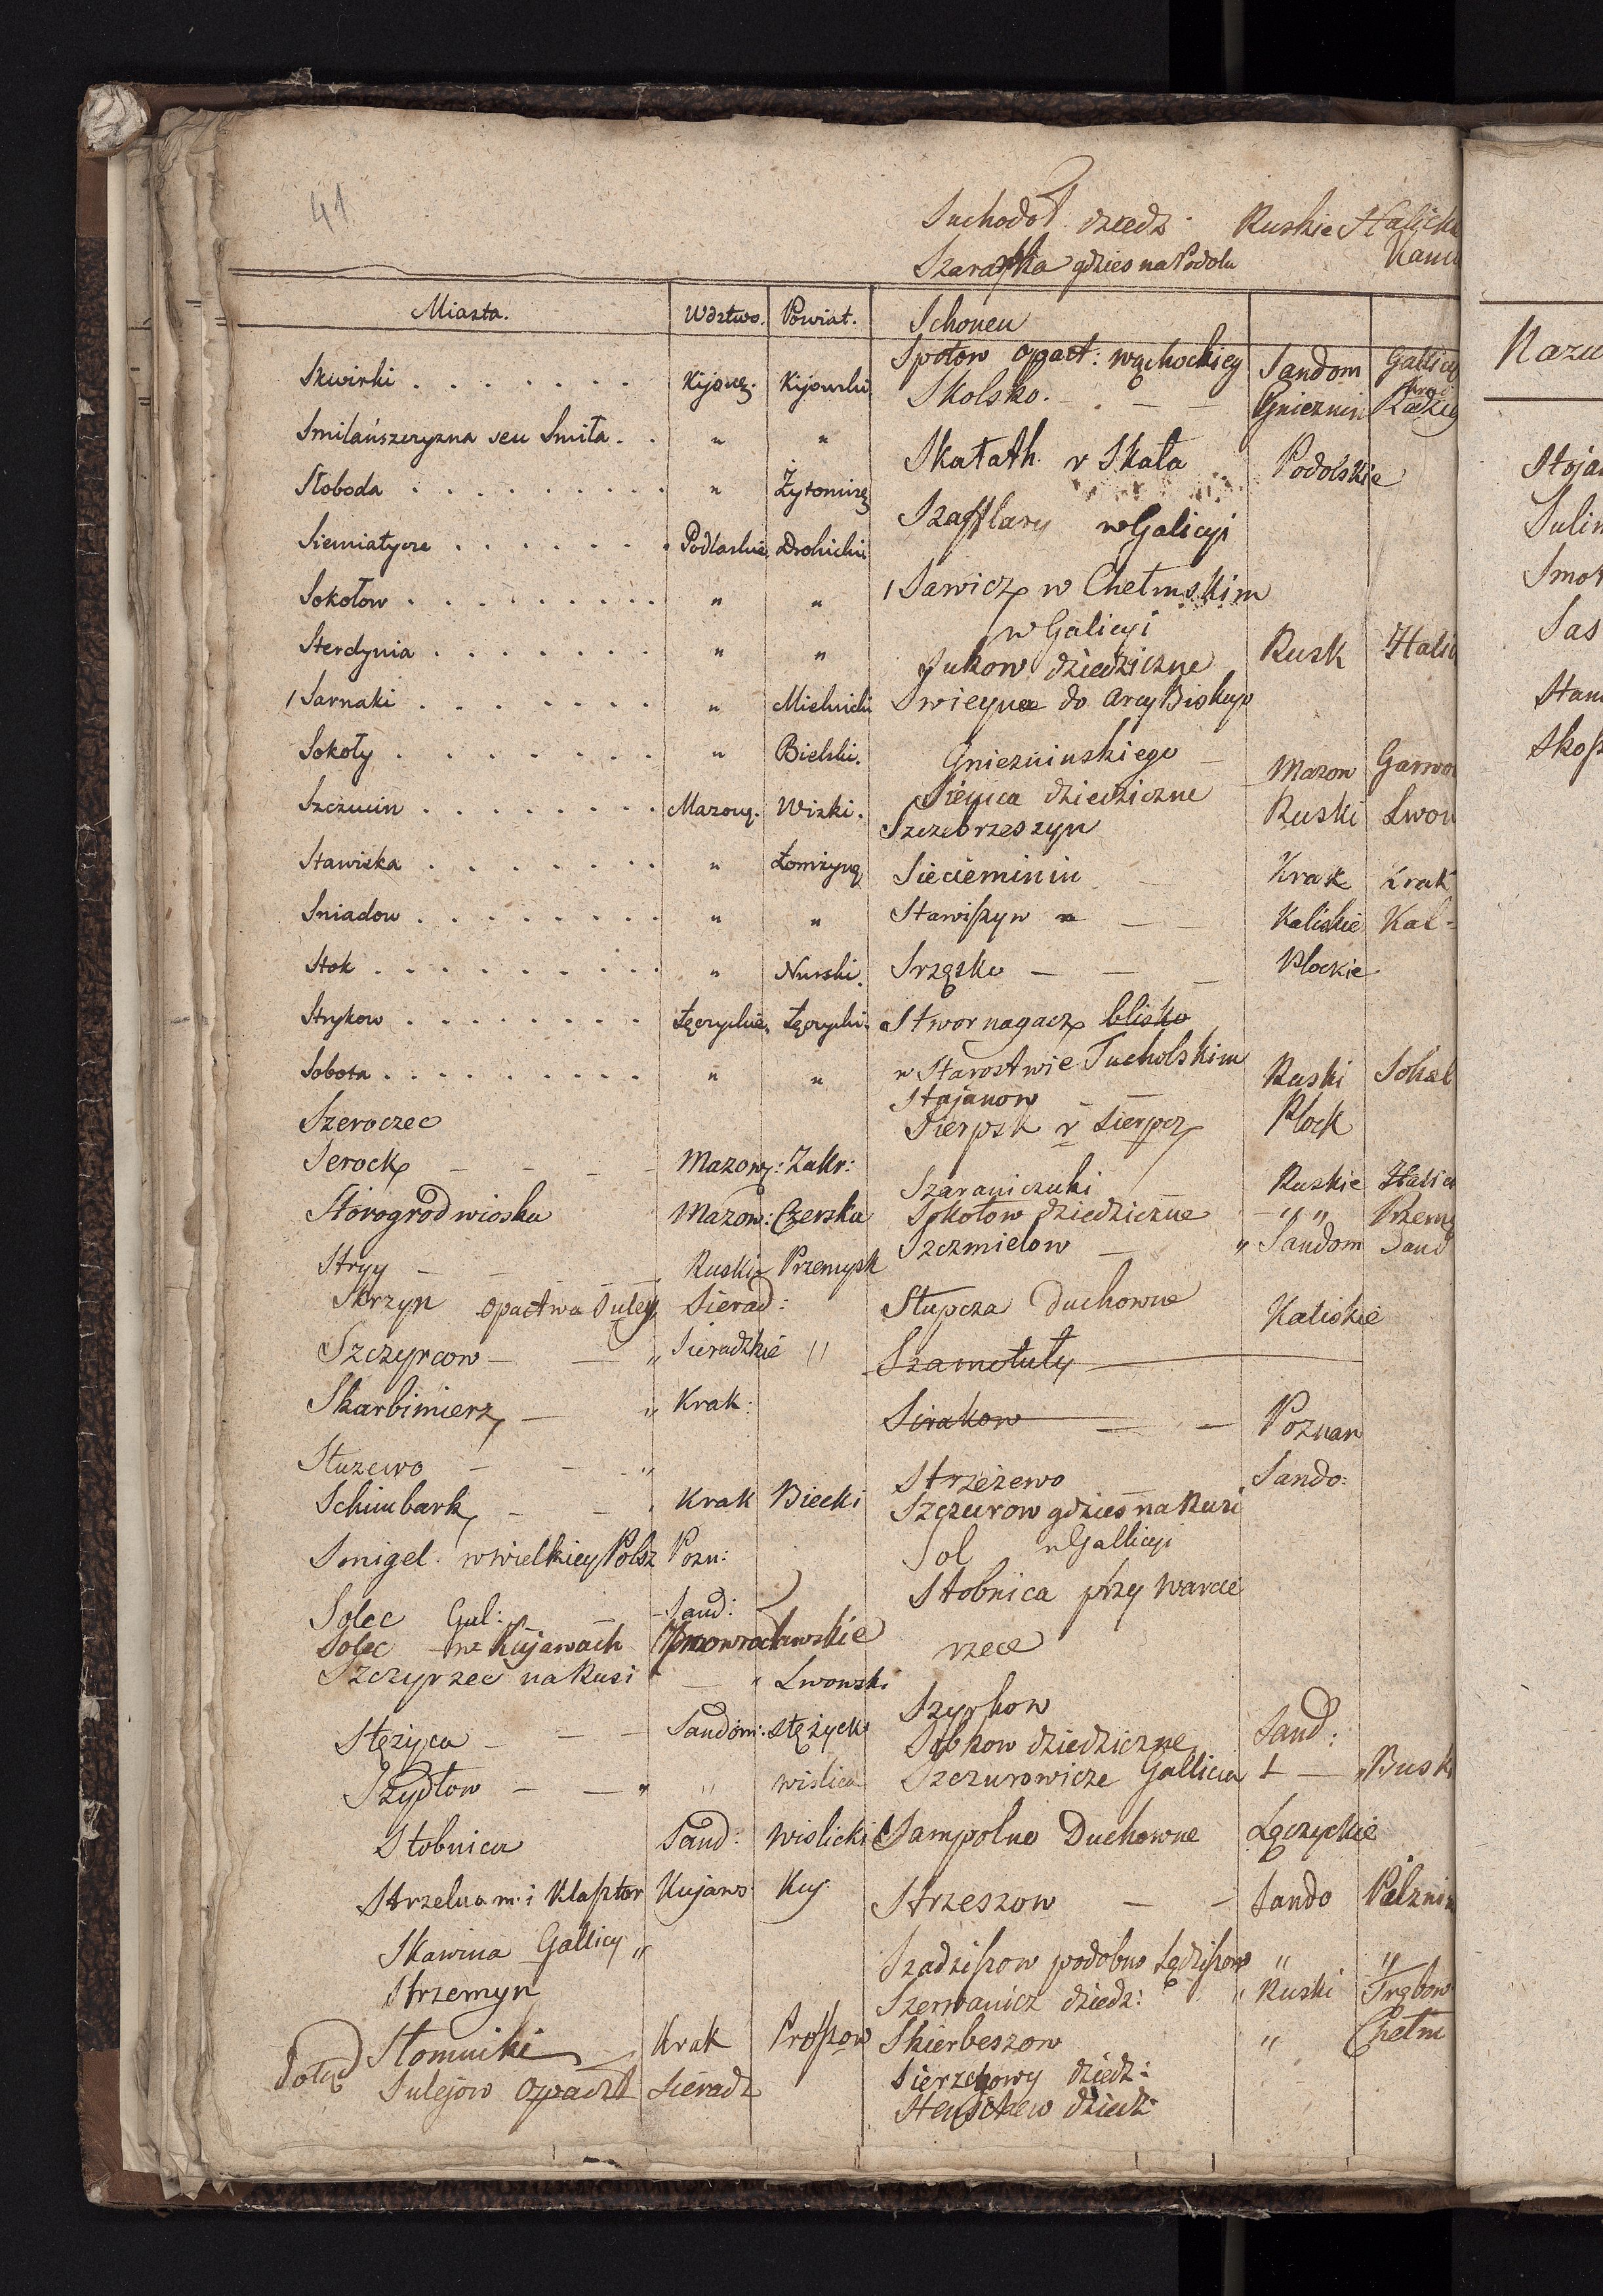 41
Suchodoł dziedz: Ruskie Halick
Szarawka gdzies na Podolu Kam
Miasta. Wdztwo. Powiat. Schoneu
Spotow opact: wąchockiey Sandom Gallicy
Skwirki . . . . . . . Kijowę. Kijowski
Skolsko. - . - - Gnieznin
Smilańszczyzna seu Smiła . . " "
Skatath v Skała Podolskie
Słoboda . . . . . . . . . " Żytomirz
Szafflary w Galicyi
Siemiatycze . . . . . . . Podlaskie Drohicki
Sokołow . . . . . . . . . " "
Sawicz w Chełmskim
w Galicyi
Sterdynia . . . . . . . " "
Sukow dziedziczne Rusk Halic
Sarnaki . . . . . . . " Mielnicki
Swieyna do Arcy Biskup
Gniezninskiego - Mazow Garwo
Sokoły . . . . . . . . " Bielski.
Sienica dziedziczne
Szczucin . . . . . . . . Mazow. Wizki.
Szczebrzeszyn Ruski Lwow
Stawiska . . . . . . . . " Łomżyńs
Siecieminin - Krak Krak
Sniadow . . . . . . . . " "
Stawiszyn - - Kaliskie Kal-
Stok . . . . . . . . . " Nurski.
Srzęsko - - - Plockie
Strykow . . . . . . . . Łęczyckie. Łęczycki.
Stwornagacz blisko
w Starostwie Tucholskim
Sobota . . . . . . . . . " "
Stajanow Ruski Sokal
Szeroczec
Sierpsk v Sierpcz Plock
Serock - - - - Mazow: Zakr:
Szaraniczuki Ruskie Halic
Storogrod wioska Mazow: Czerska
Sokołow dziedziczne - " " Przem
Szczmielow - " Sandom Sand
Stryy - - - - - Ruskie Przemysk
Skrzyn opactwa Suley Sierad:
Słupcza Duchowne Kaliskie
Szczyrcow - - " Sieradzkie "
Szamotuły
Skarbimierz - " Krak:
Sirakow - - Poznan
Służewo - - - "
Strzeżewo Sando:
Schimbark - - Krak Biecki
Szczurow gdzieś na Rusi
Smigel w wielkiey Polsz Pozn:
Sol w Gallicyi
Stobnica przy Warcie
rzece
Solec Gal: - Sand:
Solec na Kujawach Inowrocławskie
Szczyrzec na Rusi - " Lwowski
Szyrkow
Stężyca - - - Sandom: Stężycki
Sobkow dziedziczne Sand:
Szydłow - - " " Wislica
Szczurowicze Gallicia - Busk
Stobnica Sand: Wislicki
Sampolno Duchowne Łęczyckie
Strzelna m: i Klasztor Kujaws: Kuy:
Strzeszow - - Sando Pilzni
Skawina Gallicy "
Szadziszow podobno Sędziszow " "
Strzemyn
Szerwanicz dziedz: " Ruski Trębow
Słomniki Krak Proszow
Skierbeszow " Chełm
Sulejow Opactt Sieradz
Sierzchowy dziedz:
dziedz:
Nazw
Stoja
Sulim
Smo
Sas
Stan
Skop